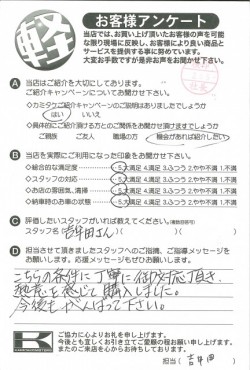 軽
お客様アンケート
当店では、お買い上げ頂いたお客様の声を可能
な限り現場に反映し、お客様により良い商品と
サービスを提供する事に努めています。
大変お手数ですが是非お声をお聞かせ下さい。
A 当店はご紹介を大切にしております。
ご紹介キャンペーンについてお聞かせ下さい。
◇カミタクご紹介キャンペーンのご説明はありましたでしょうか
はい いいえ
◇具体的にご紹介頂ける方とのご関係をお聞かせ頂けますでしょうか
ご親族 ご友人 職場の方 機会があれば紹介したい
B 当店を実際にご利用になった印象をお聞かせ下さい。
◇総合的な満足度 5.大満足 4.満足 3.ふつう 2.やや不満 1.不満
◇スタッフの対応 5.大満足 4.満足 3.ふつう 2.やや不満 1.不満
◇お店の雰囲気、清掃 5.大満足 4.満足 3.ふつう 2.やや不満 1.不満
◇納車時のお車の状態 5.大満足 4.満足 3.ふつう 2.やや不満 1.不満
C 評価したいスタッフがいれば教えてください。(複数回答可)
スタッフ名 吉年田さん
D 担当させて頂きましたスタッフへのご指摘、ご指導メッセージを
お願いします。応援メッセージもぜひお願いします。
こちらの条件に丁寧に御対応頂き、
熱意を感じて購入しました。
今後もがんばって下さい。
K
ご協力に心よりお礼を申し上げます。
今後とも宜しくお引き立てご愛顧の程お願い申し上げます。
またのご来店を心からお待ちしております。